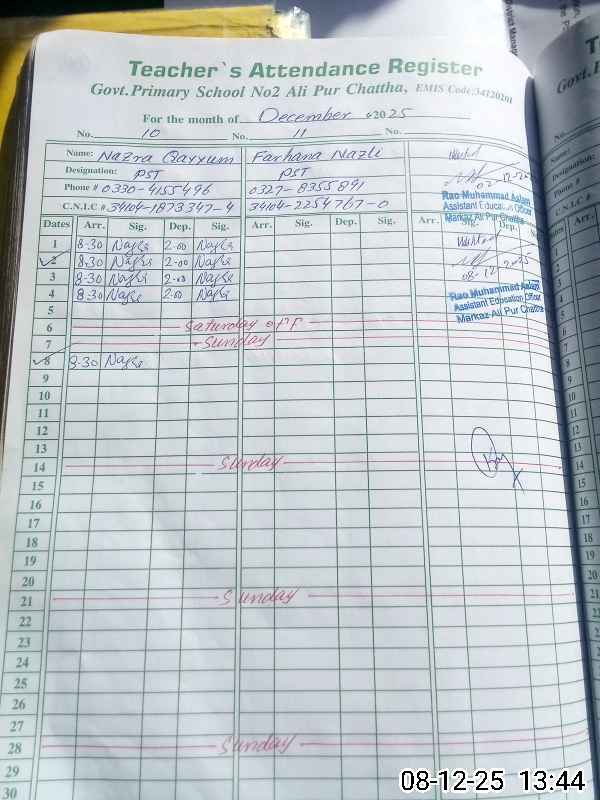 Teacher`s Attendance Register
Govt.Primary School No2 Ali Pur Chattha, EMIS Code:34120201
For the month of December 2025
No. 10 No. 11 No.
Name: Nazra Qayyum Farhana Nazli
Designation: PST PST
Phone # 0330-4155496 0327-8355891
C.N.I.C # 34104-1873347-4 34104-2254767-0
02-12-2025
Rao Muhammad Aslam
Assistant Education Officer
Markaz Ali Pur Chattha
Dates Arr. Sig. Dep. Sig. Arr. Sig. Dep. Sig. Arr. Sig. Dep.
1 8-30 2-00
2 8-30 2-00
08-12-2025
3 8-30 2-00
Rao Muhammad Aslam
Assistant Education Officer
Markaz Ali Pur Chattha
4 8-30 2-00
5
6 Saturday off
7 Sunday
8 8-30
9
10
11
12
13
14 Sunday
15
16
17
18
19
20
21 Sunday
22
23
24
25
26
27
28 Sunday
29
30
08-12-25 13:44